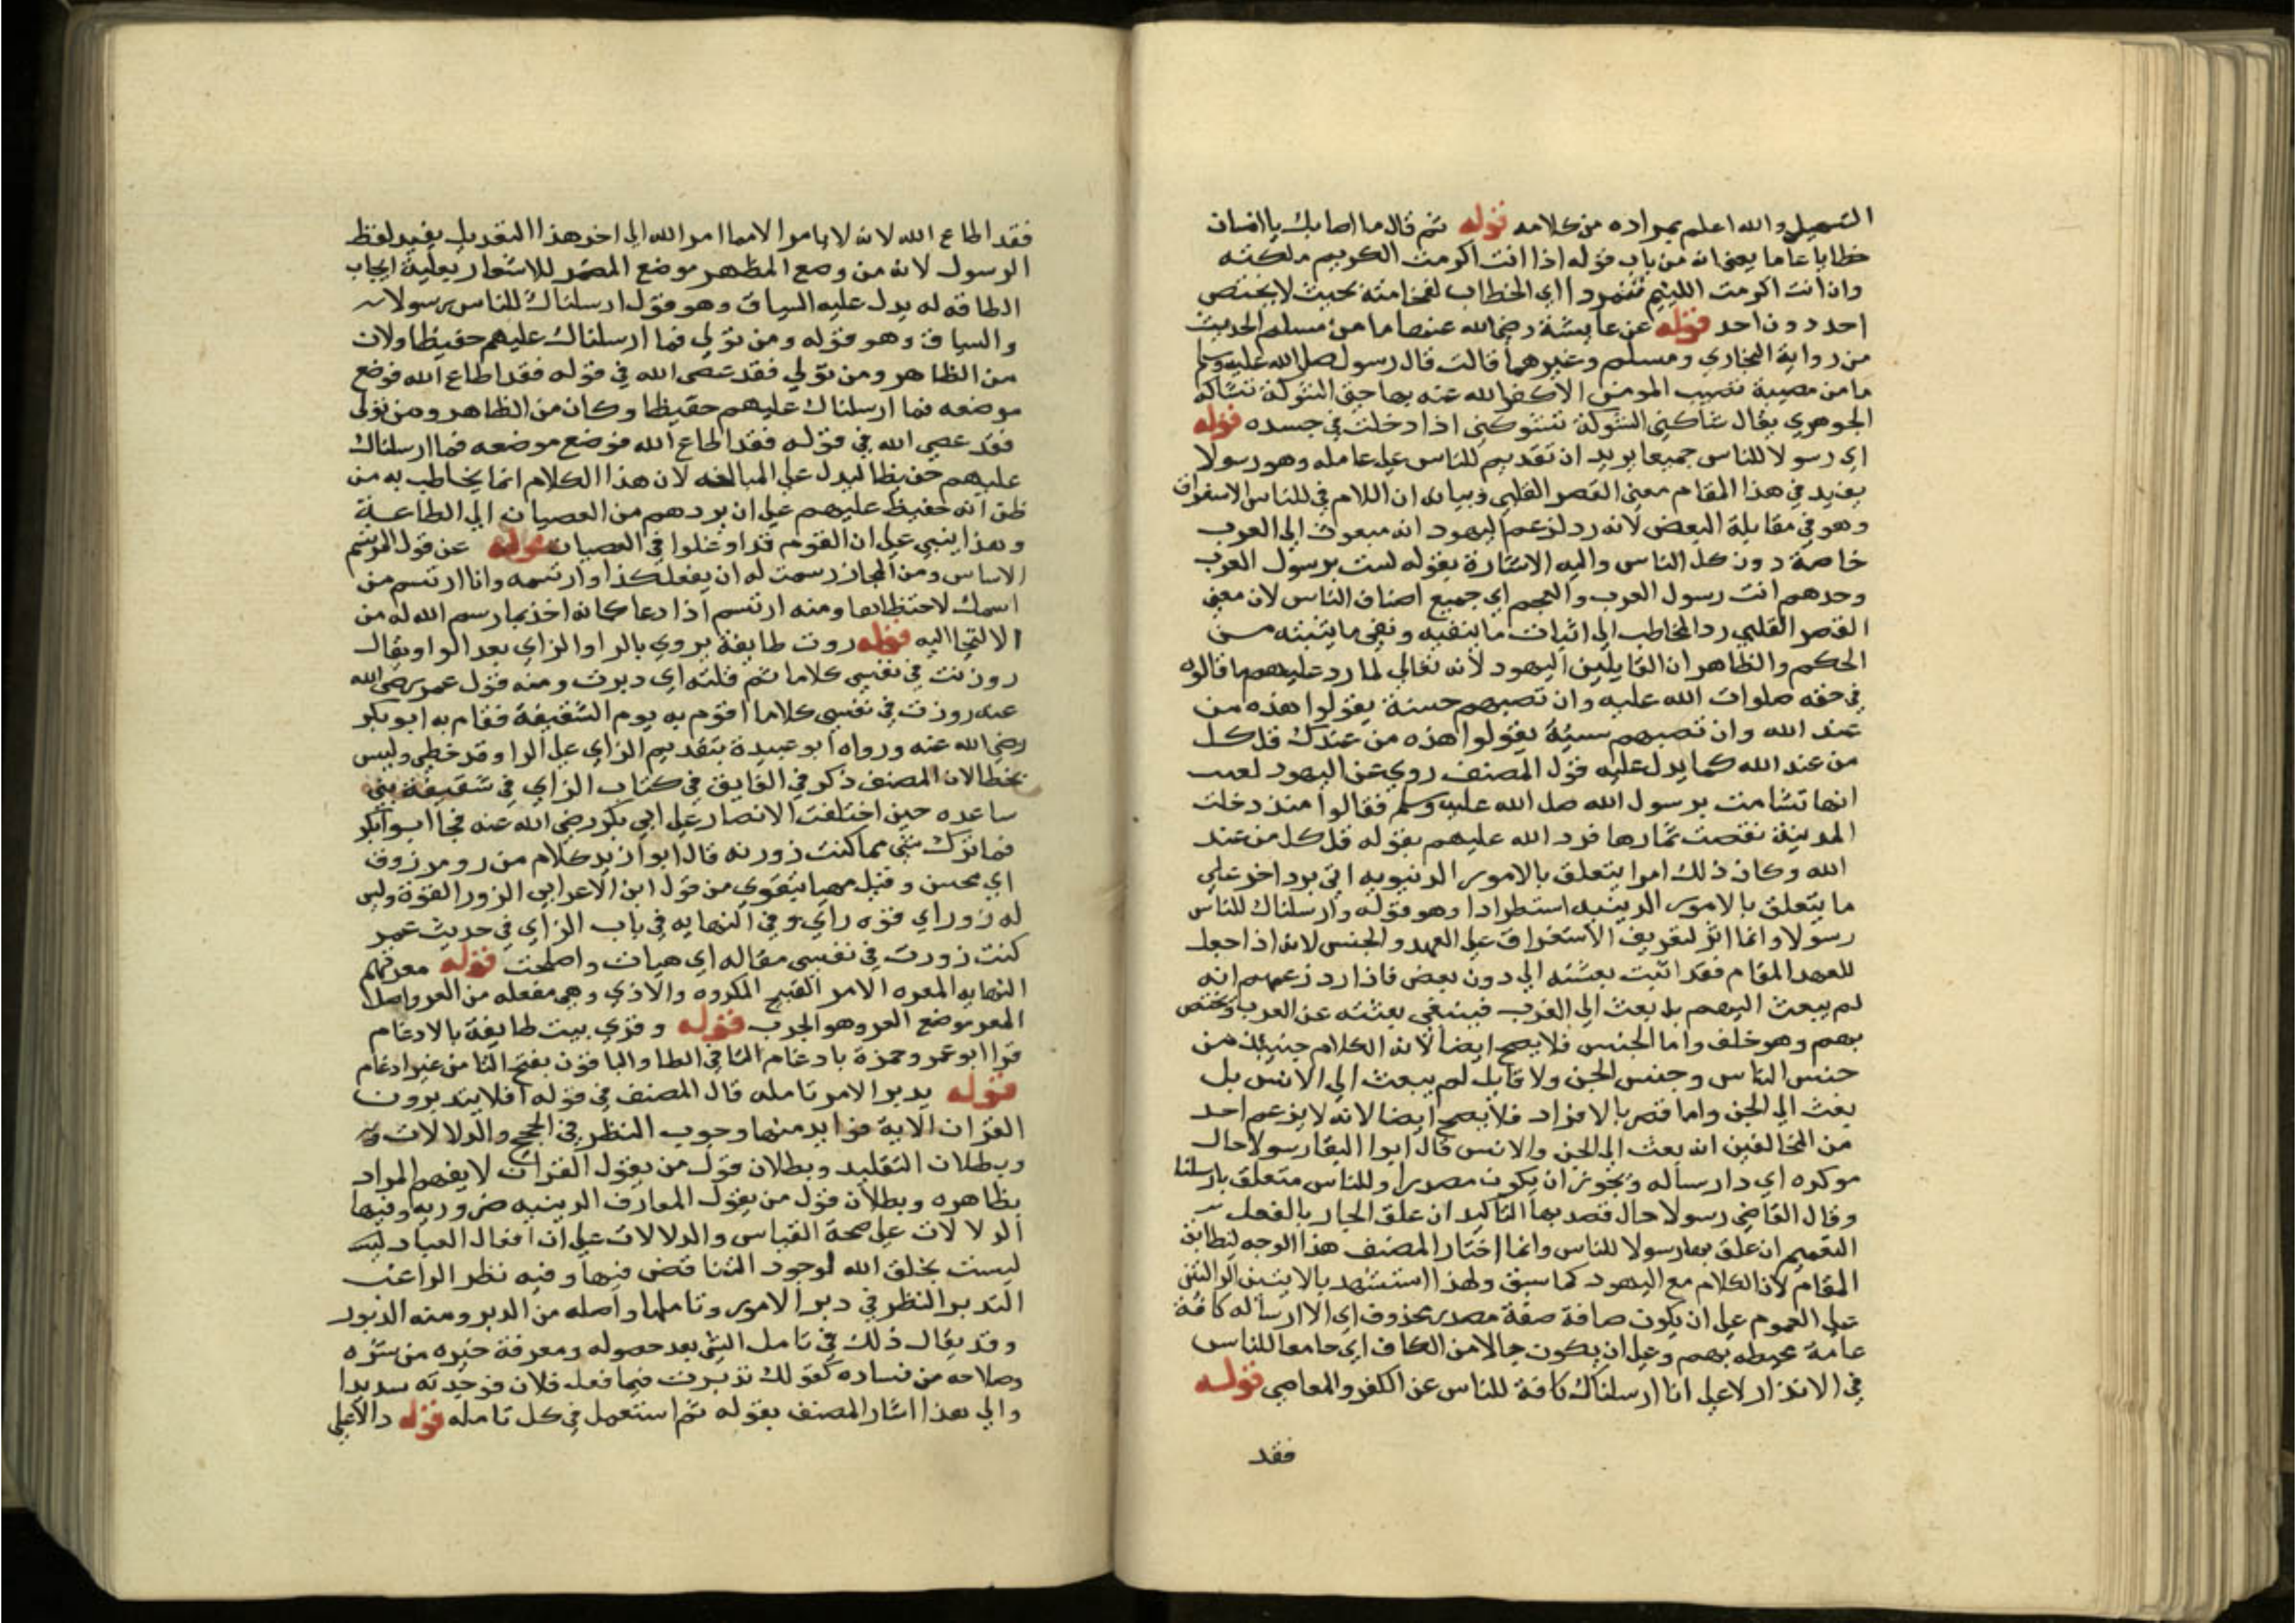 التسهيل والله اعلم بمراده من كلامه قوله ثم قال ما اصابك يا انسان
خطابا عاما يعني انه من باب قوله اذا انت اكرمت الكريم ملكته
وان انت اكرمت اللئيم تمردا اي الخطاب لفخامته بحيث لا يختص
احد دون احد قوله عن عايشة رضي الله عنها ما من مسلم الحديث
من رواية البخاري ومسلم وغيرهما قالت قال رسول صلى الله عليه وسلم
ما من مصيبة تصيب المومن الا كفر الله عنه بها حتى الشوكة تشاكه
الجوهري يقال شاكني الشوكة تشوكني اذا دخلت في جسده قوله
اي رسولا للناس جميعا يريد ان تقديم للناس على عامله وهو رسولا
يفيد في هذا المقام معنى القصر القلبي وبيانه ان اللام في للناس لاستغراق
وهو في مقابلة البعض لانه رد لزعم اليهود انه مبعوث الى العرب
خاصة دون كل الناس واليه الاشارة بقوله لست برسول العرب
وحدهم انت رسول العرب والعجم اي جميع اصناف الناس لان معنى
القصر القلبي رد المخاطب الى اثبات ما ينفيه ونفي ما يثبته من
الحكم والظاهر ان القايلين اليهود لانه تعالى لما رد عليهم ما قالوه
في حقه صلوات الله عليه وان تصبهم حسنة يقولوا هذه من
عند الله وان تصبهم سيئة يقولوا هذه من عندك قل كل
من عند الله كما يدل عليه قول المصنف روي عن اليهود لعنت
انها تشامت برسول الله صلى الله عليه وسلم فقالوا منذ دخلت
المدينة نقصت ثمارها فرد الله عليهم بقوله قل كل من عند
الله وكان ذلك امرا يتعلق بالامور الدنيويه اتى برد اخر على
ما يتعلق بالامور الدينيه استطرادا وهو قوله وارسلناك للناس
رسولا وانما اثر لتعريف الاستغراق على العهد والجنس لانه اذا جعل
للعهد المقام فقد اثبت بعثته الى دون بعض فاذا رد زعمهم انه
لم يبعث اليهم بل بعث الى العرب فينبغي بعثته عن العرب وتختص
بهم وهو خلف واما الجنس فلا يصح ايضا لانه الكلام حينئذ من
جنس الناس وجنس الجن ولا قايل لم يبعث الى الانس بل
بعث الى الجن واما قصر بالافراد فلا يصح ايضا لانه لا يزعم احد
من المخالفين انه بعث الى الجن والانس قال ابوا البقا رسولا حال
موكره اي دا رساله ويجوز ان يكون مصدرا وللناس متعلق بارسلنا
وقال القاضي رسولا حال قصد بها التاكيد ان علق الجار بالفعل
التعميم ان علق بها رسولا للناس وانما اختار المصنف هذا الوجه ليطابق
المقام لان الكلام مع اليهود كما سبق ولهذا استشهد بالايتين الدالتين
على العموم على ان يكون صافة صفة مصدر محذوف اي الا ارساله كافة
عامة محيطه بهم وعلى ان يكون حالا من الكاف اي جامعا للناس
في الانذار لا على انا ارسلناك كافة للناس عن الكفر والمعاصي قوله
فقد
فقد اطاع الله لانه لا يامر الا مما امر الله الى اخر هذا التعديل يفيد لفظ
الرسول لانه من وضع المظهر موضع المضمر للاشعار بعلية ايجاب
الطاقه له يدل عليه السياق وهو قوله ارسلناك للناس رسولا
والسياق وهو قوله ومن تولى فما ارسلناك عليهم حفيظا ولان
من الظاهر ومن تولى فقد عصى الله في قوله فقد اطاع الله فوضع
موضعه فما ارسلناك عليهم حفيظا وكان من الظاهر ومن تولى
فقد عصى الله في قوله فقد اطاع الله فوضع موضعه فما ارسلناك
عليهم حفيظا ليدل على المبالغه لان هذا الكلام انما يخاطب به من
ظن انه حفيظ عليهم على ان يردهم من العصيان الى الطاعة
وهذا ينبي على ان القوم قد اوغلوا في العصيان قوله عن قول المرتسم
الاساس ومن المجاز رسمت له ان يفعل كذا وارتسمه وانا ارتسم من
اسمك لا اتخطاها ومنه ارتسم اذا دعا كانه اخذ بما رسم الله له من
الالتجا اليه قوله روت طايفة يروي بالرا والزاي بعد الواو يقال
روزت في نفسي كلاما ثم قلته اي دبرت ومنه قول عمر رضي الله
عنه روزت في نفسي كلاما اقوم به يوم الشقيفة فقام به ابو بكر
رضي الله عنه ورواه ابو عبيدة بتقديم الزاي على الوا وقد خطي وليس
بخطا لان المصنف ذكر في الفايق في كتاب الزاي في شقيفة بني
ساعده حين اختلفت الانصار على ابي بكر رضي الله عنه فجا ابو ابكر
فما ترك شي مما كنت زورته قال ابو ازيد كلام مزرو مزوق
اي محسن وقيل مهيا يتقوي من قول ابن الاعرابي الزور القوة وليس
له زور اي قوه راي وفي النهايه في باب الزاي في حديث عمر
كنت زورت في نفسي مقاله اي هيات واصلحت قوله معرتهم
النهايه المعره الامر القبيح المكروه والاذي وهي مفعله من العر واصل
المعر موضع العر وهو الجرب قوله وقري بيت طايفة بالادغام
قرا ابو عمر وحمزة بادغام التا في الطا والباقون بفتح التا من غير ادغام
قوله يدبر الامر تامله قال المصنف في قوله افلا يتدبرون
القران الاية فوايد منها وجوب النظر في الحجج والدلالات
وبطلان التقليد وبطلان قول من يقول القران لا يفهم المراد
بظاهره وبطلان قول من يقول المعارف الدينيه ضروريه وفيها
الدلالات على صحة القياس والدلالات على ان افعال العباد ليست
ليست بخلق الله لوجود التناقض فيها وفيه نظر الراغب
التدبر النظر في دبر الامور وتاملها واصله من الدبر ومنه الدبور
وقد يقال ذلك في تامل الشي بعد حصوله ومعرفة خيره من شره
وصلاحه من فساده كقولك تدبرت فيما فعله فلان فوجدته سديدا
والى هذا اشار المصنف بقوله ثم استعمل في كل تامله قوله دالا على